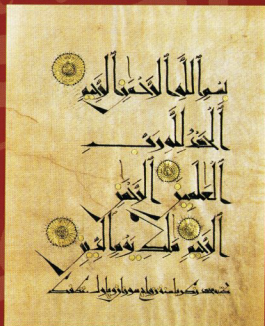 بسم الله الرحمن الرحيم
الحمد لله رب
العلمين الرحمن
الرحيم ملك يوم الدين